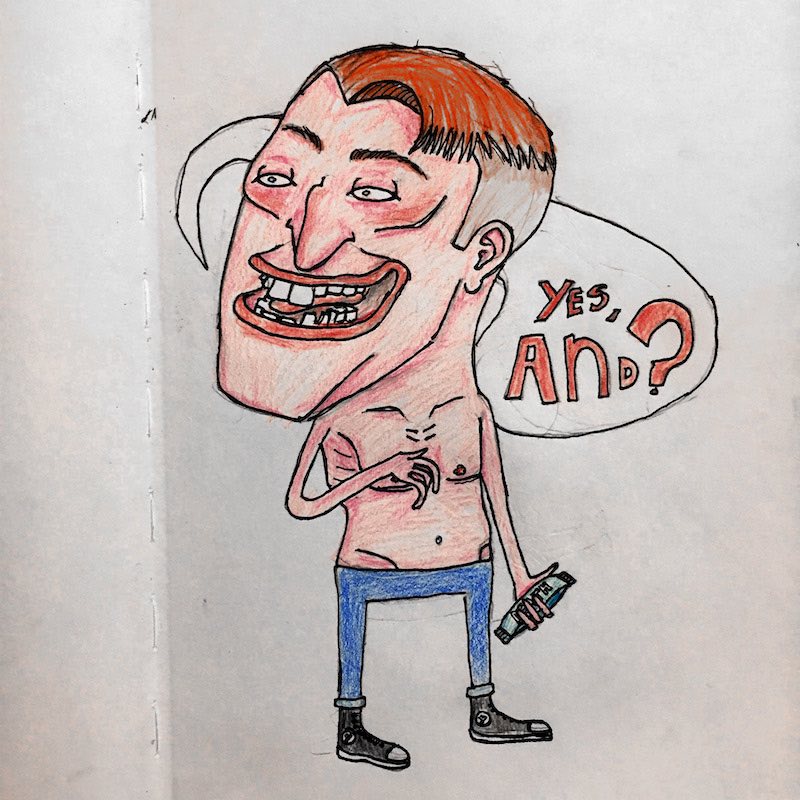 YES,
AND?